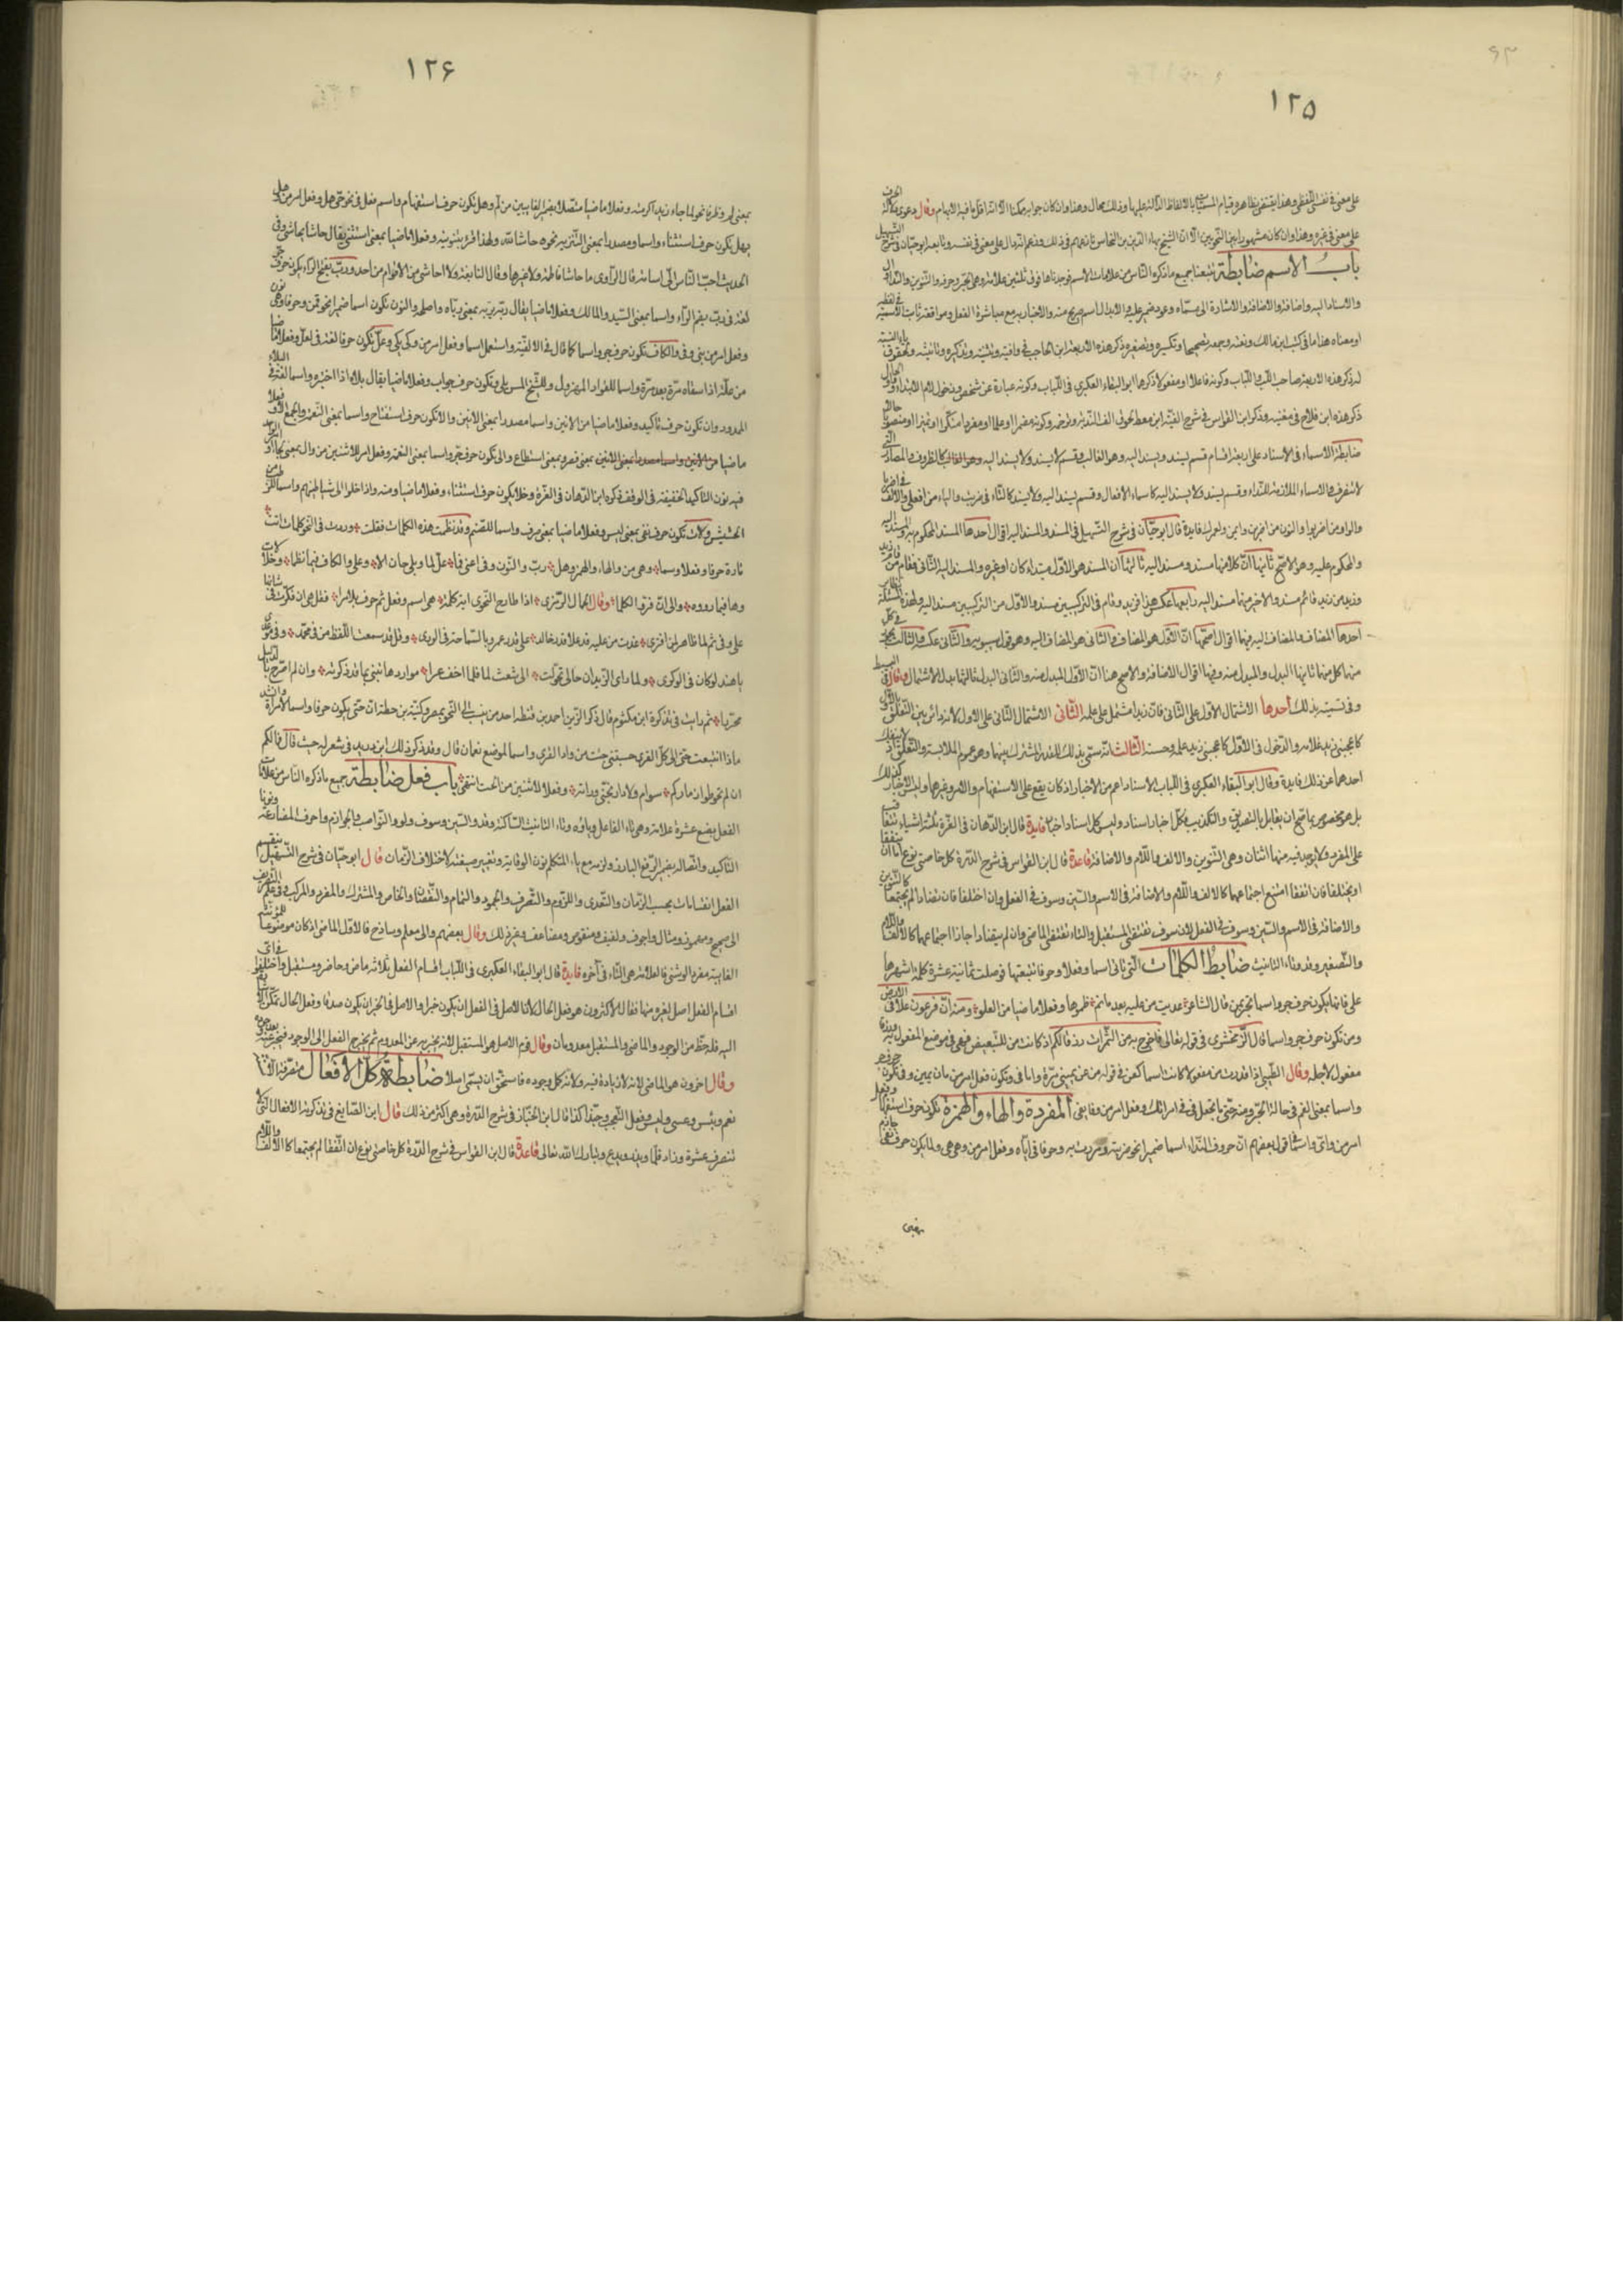 ١٢٥
على معنى فى نفس اللفظ وهذا يقتضى بظاهره قيام المسميات بالالفاظ الدالة عليها وذلك محال وهذا وان كان جوابه ممكنا الا انه اقل ما فيه الابهام وقال دعوى دلالة الحرف
على معنى فى غيره وهذا وان كان مشهورا بين النحويين الا ان الشيخ بهاء الدين بن النحاس نازعهم فى ذلك وزعم انه دال على معنى فى نفسه وتابعه ابو حيان فى شرح التسهيل
باب الاسم ضابطة تتبعنا جميع ما ذكره الناس من علامات الاسم فوجدناها فوق ثلثين علامة وهى الجر وحروفه والتنوين والنداء وال
والاسناد اليه واضافته والاضافة اليه والاشارة الى مسماه وعود ضمير عليه وابدال اسم صريح منه والاخبار به مع مباشرة الفعل وموافقة ثابت الاسمية فى لفظه
او معناه هذا ما فى كتب ابن مالك ونعته وجمعه تصحيحا وتكسيره وتصغيره ذكر هذه الاربعة ابن الحاجب فى وافيته وتثنيته وتذكيره وتانيثه ولحوق ياء النسبة
له ذكر هذه الاربعة صاحب اللب واللباب وكونه فاعلا او مفعولا ذكرهما ابو البقاء العكبرى فى اللباب وكونه عبارة عن شخص ودخول لام الابتداء وواو الحال
ذكر هذه ابن فلاح فى مغنيه وذكر ابن القواس فى شرح الفية ابن معط لحوق الف الندبة وترخيمه وكونه مضمرا او علما او مفردا منكرا او تمييزا او منصوبا حالا
ضابطة الاسماء فى الاسناد على اربعة اقسام قسم يسند ويسند اليه وهو الغالب وقسم لا يسند ولا يسند اليه كالظروف والمصادر التى
لا تتصرف والاسماء الملازمة للنداء وقسم يسند ولا يسند اليه كاسماء الافعال وقسم يسند اليه ولا يسند كالتاء فى ضربت والياء من افعلى والالف فى اضربا
والواو من اضربوا والنون من اضربن وايمن ولعمرك فايدة قال ابو حيان فى شرح التسهيل فى المسند والمسند اليه اقوال احدها المسند المحكوم به والمسند اليه
والمحكوم عليه وهو الاصح ثانيها ان كلا منهما مسند ومسند اليه ثالثها ان المسند هو الاول مبتداء كان او غيره والمسند اليه الثانى فقام من قام زيد
وزيد من زيد قائم مسند والاخير منهما مسند اليه رابعها عكس هذا فزيد وقام فى التركيبين مسند والاول من التركيبين مسند اليه ولهذه المسئلة نظائر
احدها المضاف والمضاف اليه فيهما اقوال اصحها ان الاول هو المضاف والثانى هو المضاف اليه وهو قول سيبويه والثانى عكسه والثالث يجوز فى كل
منهما كل منهما ثانيها البدل والمبدل منه وفيها اقوال الاضافة والاصح هنا ان الاول المبدل منه والثانى البدل ثالثها بدل الاشتمال وقال فى البسيط
وفى تسميته بذلك احدها الاشتمال الاول على الثانى فان زيدا مشتمل على علمه الثانى لاشتمال الثانى على الاول لانه دائر بين التعلق بالاول
كاعجبنى زيد غلامه والدخول فى الاول كاعجبنى زيد علمه وحسنه الثالث انه سمى بذلك للقدر المشترك بينهما وهو عموم الملابسة والتعلق اذ لا ينفك
احدهما عن ذلك فايدة وقال ابو البقاء العكبرى فى اللباب الاسناد اعم من الاخبار اذ كان يقع على الاستفهام والامر وغيرهما وليس الاخبار كذلك
بل هو مخصوص بما صح ان يقابل بالتصديق والتكذيب فكل اخبار اسناد وليس كل اسناد اخبارا فايدة قال ابن الدهان فى الغرة ثلثة اشياء تتعاقب
على المفرد ولا يوجد فيه منها اثنان وهى التنوين والالف واللام والاضافة قاعدة قال ابن القواس فى شرح الدرة كل خاصتى نوع اما ان يتفقا
او يختلفا فان اتفقا امتنع اجتماعهما كالالف واللام والاضافة فى الاسم والسين وسوف فى الفعل وان اختلفا فان تضادا لم يجتمعا كالتنوين
والاضافة فى الاسم والسين وسوف فى الفعل لان سوف تقتضى المستقبل والتاء تقتضى الماضى وان لم يتضادا جاز اجتماعهما كالالف واللام
والتصغير وقد وتاء التانيث ضابط الكلمات التى تاتى اسما وفعلا وحرفا تتبعتها فوصلت ثمانية عشرة كلمة اشهرها
على فانها يكون حرف جر واسما تجر بمن قال الشاعر غدت من عليه بعد ما تم ظمؤها وفعلا ماضيا من العلو ومنه ان فرعون علا فى الارض
ومن تكون حرف جر واسما قال الزمخشرى فى قوله تعالى فاخرج به من الثمرات رزقا لكم اذ كانت من للتبعيض فهى فى موضع المفعول به ورزقا
مفعول لاجله وقال الطيبى اذا قدرت من مفعولا كانت اسما كعن فى قوله من عن يمينى مرة وامامى وتكون فعل امر من مان يمين وفى تكون حرف جر
واسما بمعنى الفم فى حالة الجر ومنه حتى ما تجعل فى فى امراتك وفعل امر من وفا يفى الهمزة المفردة والهاء والهمزة تكون حرف استفهام وفعل
امر من واى واسما فى قول بعضهم ان حروف النداء اسما ضميرا نحو ضربته ومررت به وحرفا فى اياه وفعل امر من وهى يهى ولما يكون حرف نفى جازم
بمعنى
١٢۶
بمعنى لم وظرفا نحو لما جاء زيد اكرمته وفعلا ماضيا متصلا بضمير الغايبين من لم وهل تكون حرف استفهام واسم فعل فى نحو حى هل وفعل امر من وهل
يهل تكون حرف استثناء واسما ومصدرا بمعنى التنزيه نحوه حاشا لله ولهذا قرئ بتنوينه وفعلا ماضيا بمعنى استثنى يقال حاشا يحاشى وفى
الحديث احب الناس الى اسامة قال الراوى ما حاشا فاطمة ولا غيرها وقال النابغة ولا احاشى من الاقوام من احد ورب بفتح الراء يكون حرف جر
لغة فى رب بضم الراء واسما بمعنى السيد والمالك وفعلا ماضيا يقال ربه يربه بمعنى رباه واصلحه والنون تكون اسما ضميرا نحو قمن وحرفا وهى نون
وفعل امر من ونى وفى والكاف تكون حرف جر واسما كما قال فى الالفية واستعمل اسما وفعل امر من وكى يكى وعل تكون حرفا لغة فى لعل وفعلا ماضيا
من عله اذا سقاه مرة بعد مرة واسما للقراد المهزول وللشيخ المسن بلى وتكون حرف جواب وفعلا ماضيا يقال بلاه اذا اختبره واسما لغة فى البلاء
الممدود وان تكون حرف تاكيد وفعلا ماضيا من الانين واسما مصدرا بمعنى الانين والا تكون حرف استفتاح واسما بمعنى النعمة والجمع الالاء وفعلا
ماضيا بمعنى قصر وبمعنى استطاع والى تكون حرف جر واسما بمعنى النعمة وفعل امر للاثنين من وال بمعنى لجا
فيه نون التاكيد الخفيفة فى الوقف ذكره ابن الدهان فى الغرة وخلا يكون حرف استثناء وفعلا ماضيا ومنه واذا خلوا الى شياطينهم واسما للرطب من
الحشيش ولات تكون حرف نفى بمعنى ليس وفعلا ماضيا بمعنى صرف واسما للصنم وقد نظمت هذه الكلمات فقلت وردت فى النحو كلمات اتت
تارة حرفا وفعلا وسما وهى من والهاء والهمز وهل رب والنون وفى اعنى فما عل لما وبلى حاش الا وعلى والكاف فيما نظما وخلا لات
وها فيما رووه والى ان فرو الكلما وقال الجمال السرمرى اذا طارح النحوى اية كلمة هى اسم وفعل ثم حرف بلا مرا فقل هى ان فكرت فى شانها
على وفى ثم لما ظاهر لمن اقترى غدت من عليه قد علا قدر خالد على قدر عمرو بالسماحة فى الورى وقل قد سمعت اللفظ من فى محمد وفى
يا هند لو كان فى الوكرى ولما راى الزيدان حالى تحولت الى شعث لما فلما اخف عرا مواردها تنبى بما قد ذكرته وان لم اصرح بالدليل
محررا ثم رايت فى تذكرة ابن مكتوم قال ذكر الزين احمد بن قطنه احد من ينسب الى النحو بمصر وكنيته بن حطة ان حتى يكون حرفا واسما لامراة وانشد
ماذا ابتغت حتى الى كل القرى حسبتنى جئت من وادا القرى واسما لموضع نعمان قال وقد ذكر ذلك ابن دريد فى شعر له حيث قال فما لكم
ان لم تحوطوا ذماركم سوام ولا دار بحتى ودانه وفعلا لاثنين من الحت انتهى باب فعل ضابطة جميع ما ذكره الناس من علامات
الفعل بضع عشرة علامة وهى تاء الفاعل وياؤه وتاء التانيث الساكنة وقد والسين وسوف ولو والنواصب والجوازم واحرف المضارعة ونونا
التاكيد واتصاله بضمير الرفع البارز ولزومه مع ياء المتكلم نون الوقاية وتغيير صيغته لاختلاف الزمان قال ابو حيان فى شرح التسهيل ينقسم
الفعل انقسامات بحسب الزمان والتعدى واللزوم والتصرف والجمود والتمام والنقصان والخاص والمشترك والمفرد والمركب وفى علم التصريف
الى صحيح ومهموز ومثال واجوف ولفيف ومنقوص ومضاعف وغير ذلك وقال بعضهم والى معلم وساذج فالاول الماضى اذ كان موضوعا للمؤنث
الغايبة مفردا او مثنى فالعلامة هى التاء فى آخره فايدة قال ابو البقاء العكبرى فى اللباب اقسام الفعل ثلاثة ماض وحاضر ومستقبل واختلفوا فى اى
اقسام الفعل اصل لغيره منها فقال الاكثرون هو فعل الحال لان الاصل فى الفعل ان يكون خبرا والاصل فى الخبر ان يكون صدقا وفعل الحال
اليه فله حظ من الوجود والماضى والمستقبل معدومان وقال قوم الاصل هو المستقبل لانه يخبر به عن المعدوم ثم يخرج الفعل الى الوجود فيخبر عنه بعد وجوده
وقال اخرون هو الماضى لانه لا زيادة فيه ولانه كمل وجوده فاستحق ان يسمى اصلا ضابطة كل الافعال متصرفة الا
نعم وبئس وعسى وليس وفعل التعجب وحبذا كذا قال ابن الخباز فى شرح الدرة وهى اكثر من ذلك قال ابن الصايغ فى تذكرته الافعال التى لا
تتصرف عشرة وزاد قلما ويذر ويدع وتبارك الله تعالى قاعدة قال ابن القواس فى شرح الدرة كل خاصتى نوع ان اتفقا لم يجتمعا كالالف واللام